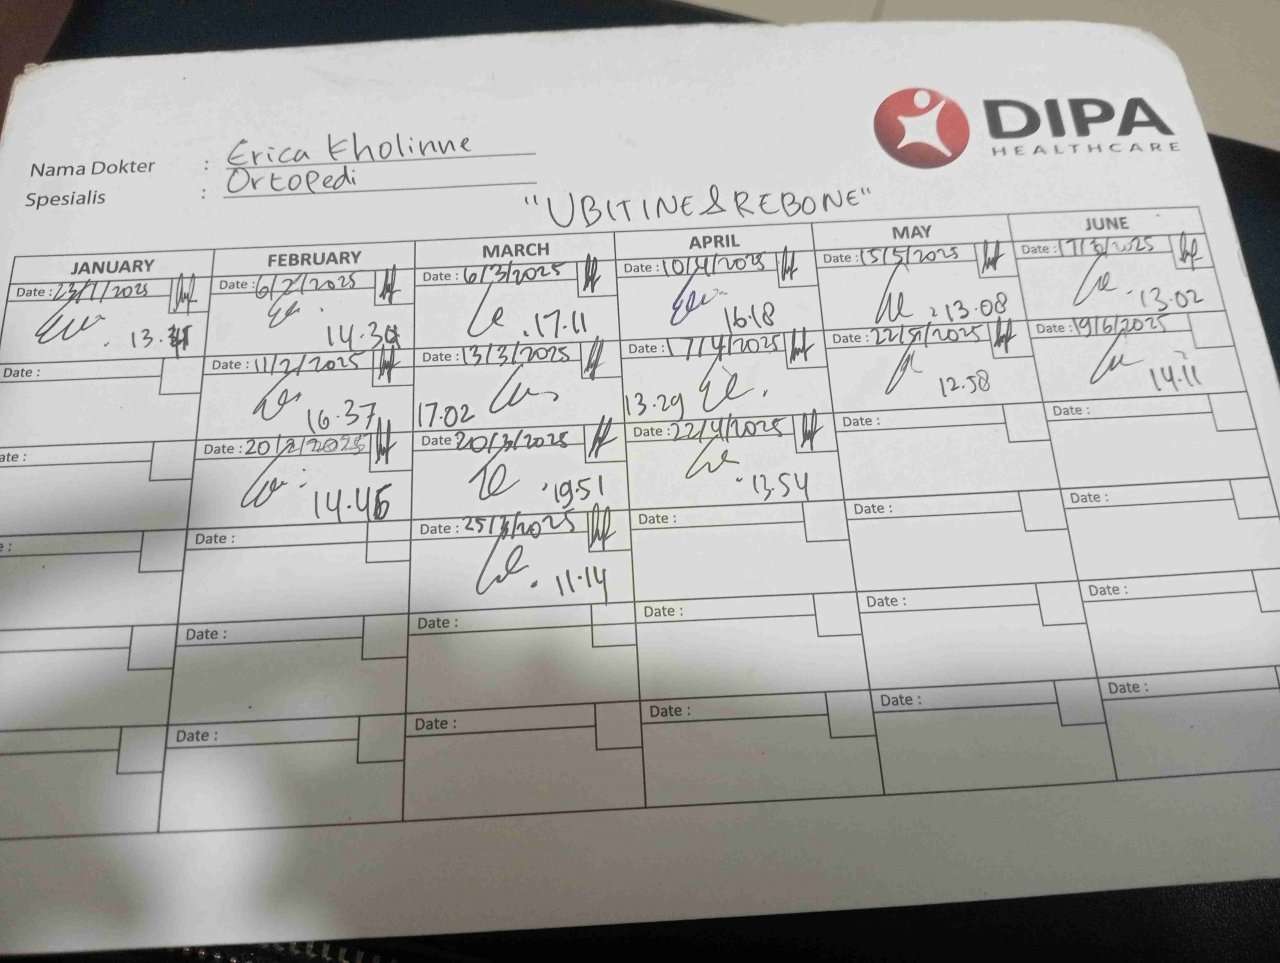 DIPA
HEALTHCARE
Nama Dokter : Erica Kholinne
Spesialis : Ortopedi
"UBITINE & REBONE"
JANUARY FEBRUARY MARCH APRIL MAY JUNE
Date : 23/1/2025 Date : 6/2/2025 Date : 6/3/2025 Date : 10/4/2025 Date : 15/5/2025 Date : 17/6/2025
14.30 .17.11 16.18 13.08 .13.02
Date : Date : 11/2/2025 Date : 13/3/2025 Date : 17/4/2025 Date : 22/5/2025 Date : 19/6/2025
16.37 17.02 13.29 12.58 14.11
ate : Date : 20/2/2025 Date 20/3/2025 Date : 22/4/2025 Date : Date :
14.45 .19.51 .13.54
e : Date : Date : 25/3/2025 Date : Date : Date :
.11.14
Date : Date : Date : Date : Date :
Date : Date : Date : Date : Date :